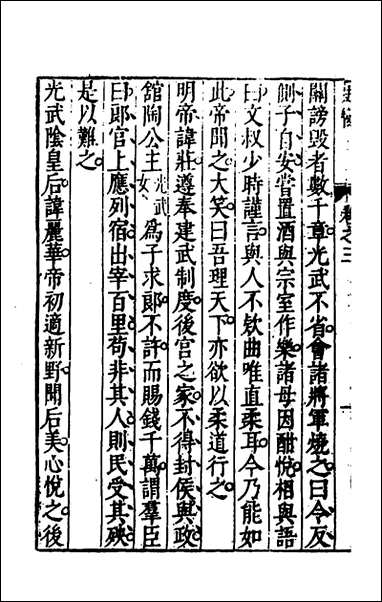 關謗毀者數千章光武不省會諸將軍燒之曰令反
側子自安嘗置酒與宗室作樂諸母因酣悅相與語
曰文叔少時謹言與人不欵曲唯直柔耳今乃能如
此帝聞之大笑曰吾理天下亦欲以柔道行之
明帝諱莊遵奉建武制度後宮之家不得封侯與政
館陶公主光武女為子求郞不許而賜錢千萬謂羣臣
曰郎官上應列宿出宰百里苟非其人則民受其殃
是以難之
光武陰皇后諱麗華帝初適新野聞后美心悅之後
卷之三